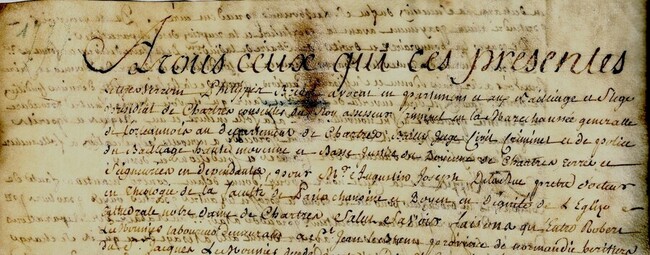 A tous ceux qui ces presentes
Lettres verront Philippe avocat en parlement et aux Bailliage et Siege
Presidial de Chartres conseiller du Roy assesseur en la Marechaussée generalle
de Lorleannois au departement de Chartres Juge Civil Criminel et de police
du Bailliage haute moyenne et Basse Justice du Doyenné de Chartres terres et
Seigneuries en dependantes, pour Mre. Augustin Joseph pretre docteur
en theologie de la faculté de Paris chanoine et Doyen en Dignité de l'Eglize
Cathedralle notre dame de Chartres Salut Scavoir faisons qu'entre Robert
laboureur demeurant a St. Jean province de normandie heritiers
de Jacques